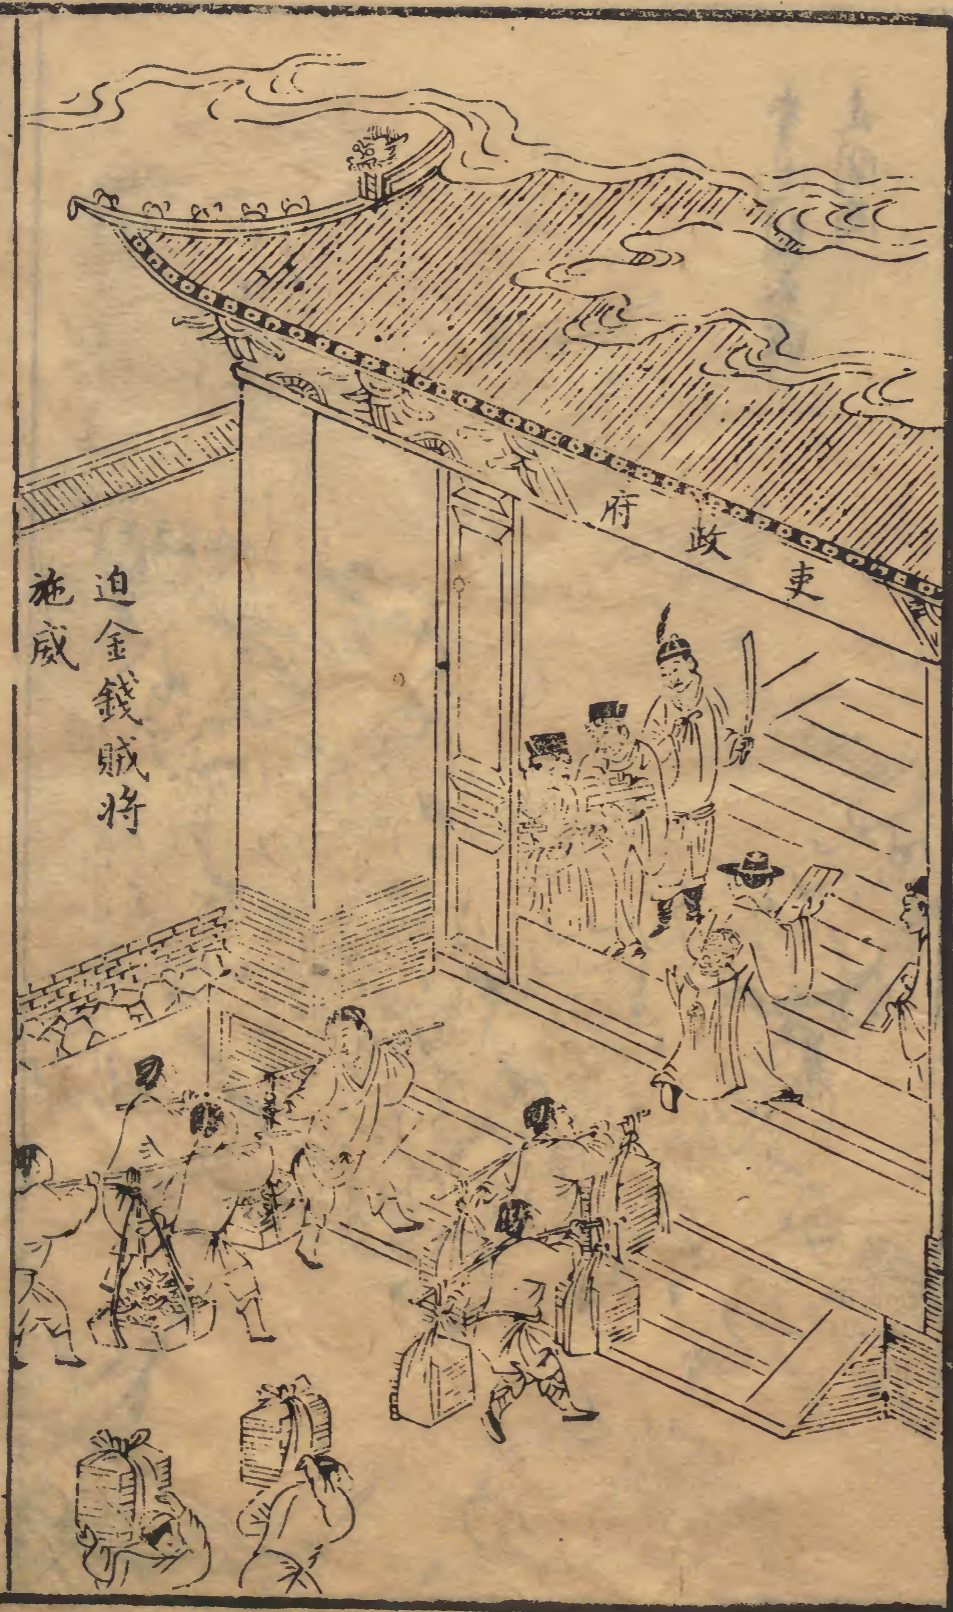 吏政府
迫金錢賊將
施威